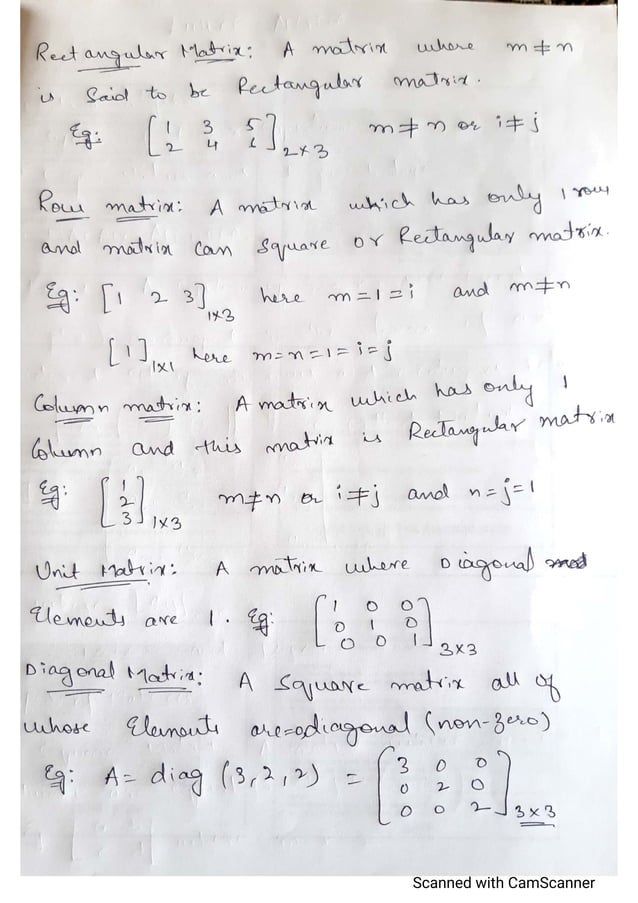 Rectangular Matrix: A matrix where m ≠ n
is said to be Rectangular matrix.
Eg: [1 3 5
2 4 6] 2×3 m ≠ n or i ≠ j
Row matrix: A matrix which has only 1 row
and matrix can square or Rectangular matrix.
Eg: [1 2 3] 1×3 here m = 1 = i and m ≠ n
[1] 1×1 here m = n = 1 = i = j
Column matrix: A matrix which has only 1
Column and this matrix is Rectangular matrix
Eg: [1
2
3] 1×3 m ≠ n or i ≠ j and n = j = 1
Unit Matrix: A matrix where Diagonal
Elements are 1. Eg: [1 0 0
0 1 0
0 0 1] 3×3
Diagonal Matrix: A square matrix all of
whose Elements are=0diagonal (non-zero)
Eg: A = diag (3,2,2) = [3 0 0
0 2 0
0 0 2] 3×3
Scanned with CamScanner